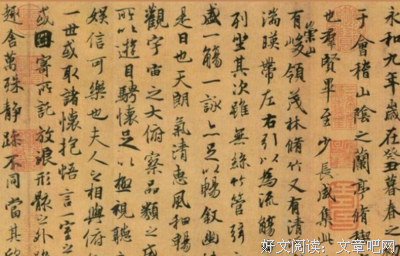 永和九年歲在癸丑暮春之
于會稽山陰之蘭亭脩稧
也羣賢畢至少長咸集
有崇山峻領茂林脩竹又有清
湍暎帶左右引以為流觴
列坐其次雖無絲竹管弦
盛一觴一詠亦足以暢敘幽
是日也天朗氣清惠風和暢
觀宇宙之大俯察品類之盛
所以遊目騁懷足以極視聽
娛信可樂也夫人之相與俯
一世或取諸懷抱悟言一室之
或因寄所託放浪形骸之外
趣舍萬殊靜躁不同當其
好文阅读:文章吧网